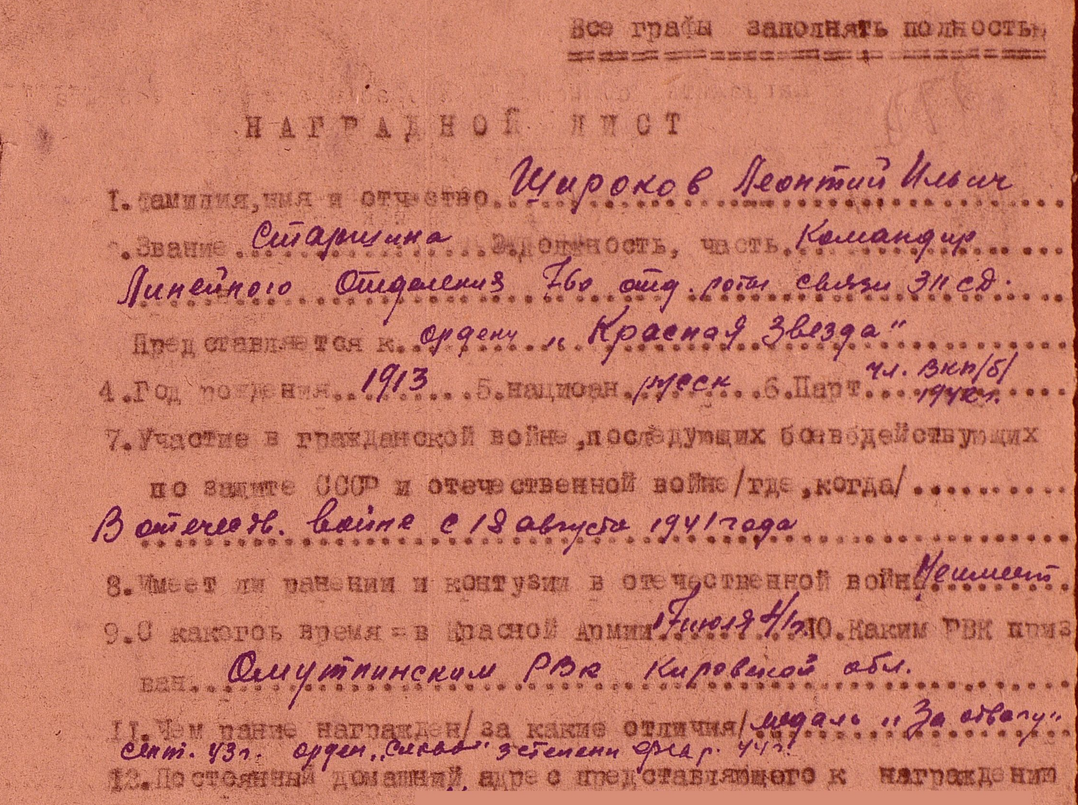 Все графы заполнять полностью
НАГРАДНОЙ ЛИСТ
1. Фамилия, имя и отчество Широков Леонтий Ильич
2. Звание Старшина 3. Должность, часть Командир
Линейного Отделения 760 отд. роты связи ЭН СД.
Представляется к ордену „Красная Звезда"
4. Год рождения 1913 5. национ. русск 6. Парт. чл. ВКП/б/
7. Участие в гражданской войне, последующих боевбдействующих
по защите СССР и отечественной войне/где, когда/
В отечеств. войне с 18 августа 1941 года
8. Имеет ли ранении и контузии в отечественной войне Неимеет.
9. С какогоь время в Красной Армии 17 июля 41 г. 10. Каким РВК приз
ван Омутнинским РВК Кировской обл.
11. Чем рание награжден/за какие отличия/ медаль „За отвагу"
сент. 43г. орден „Славы" 3 степени 44г.
12. Постоянный домашний адрес представляющего к награждению